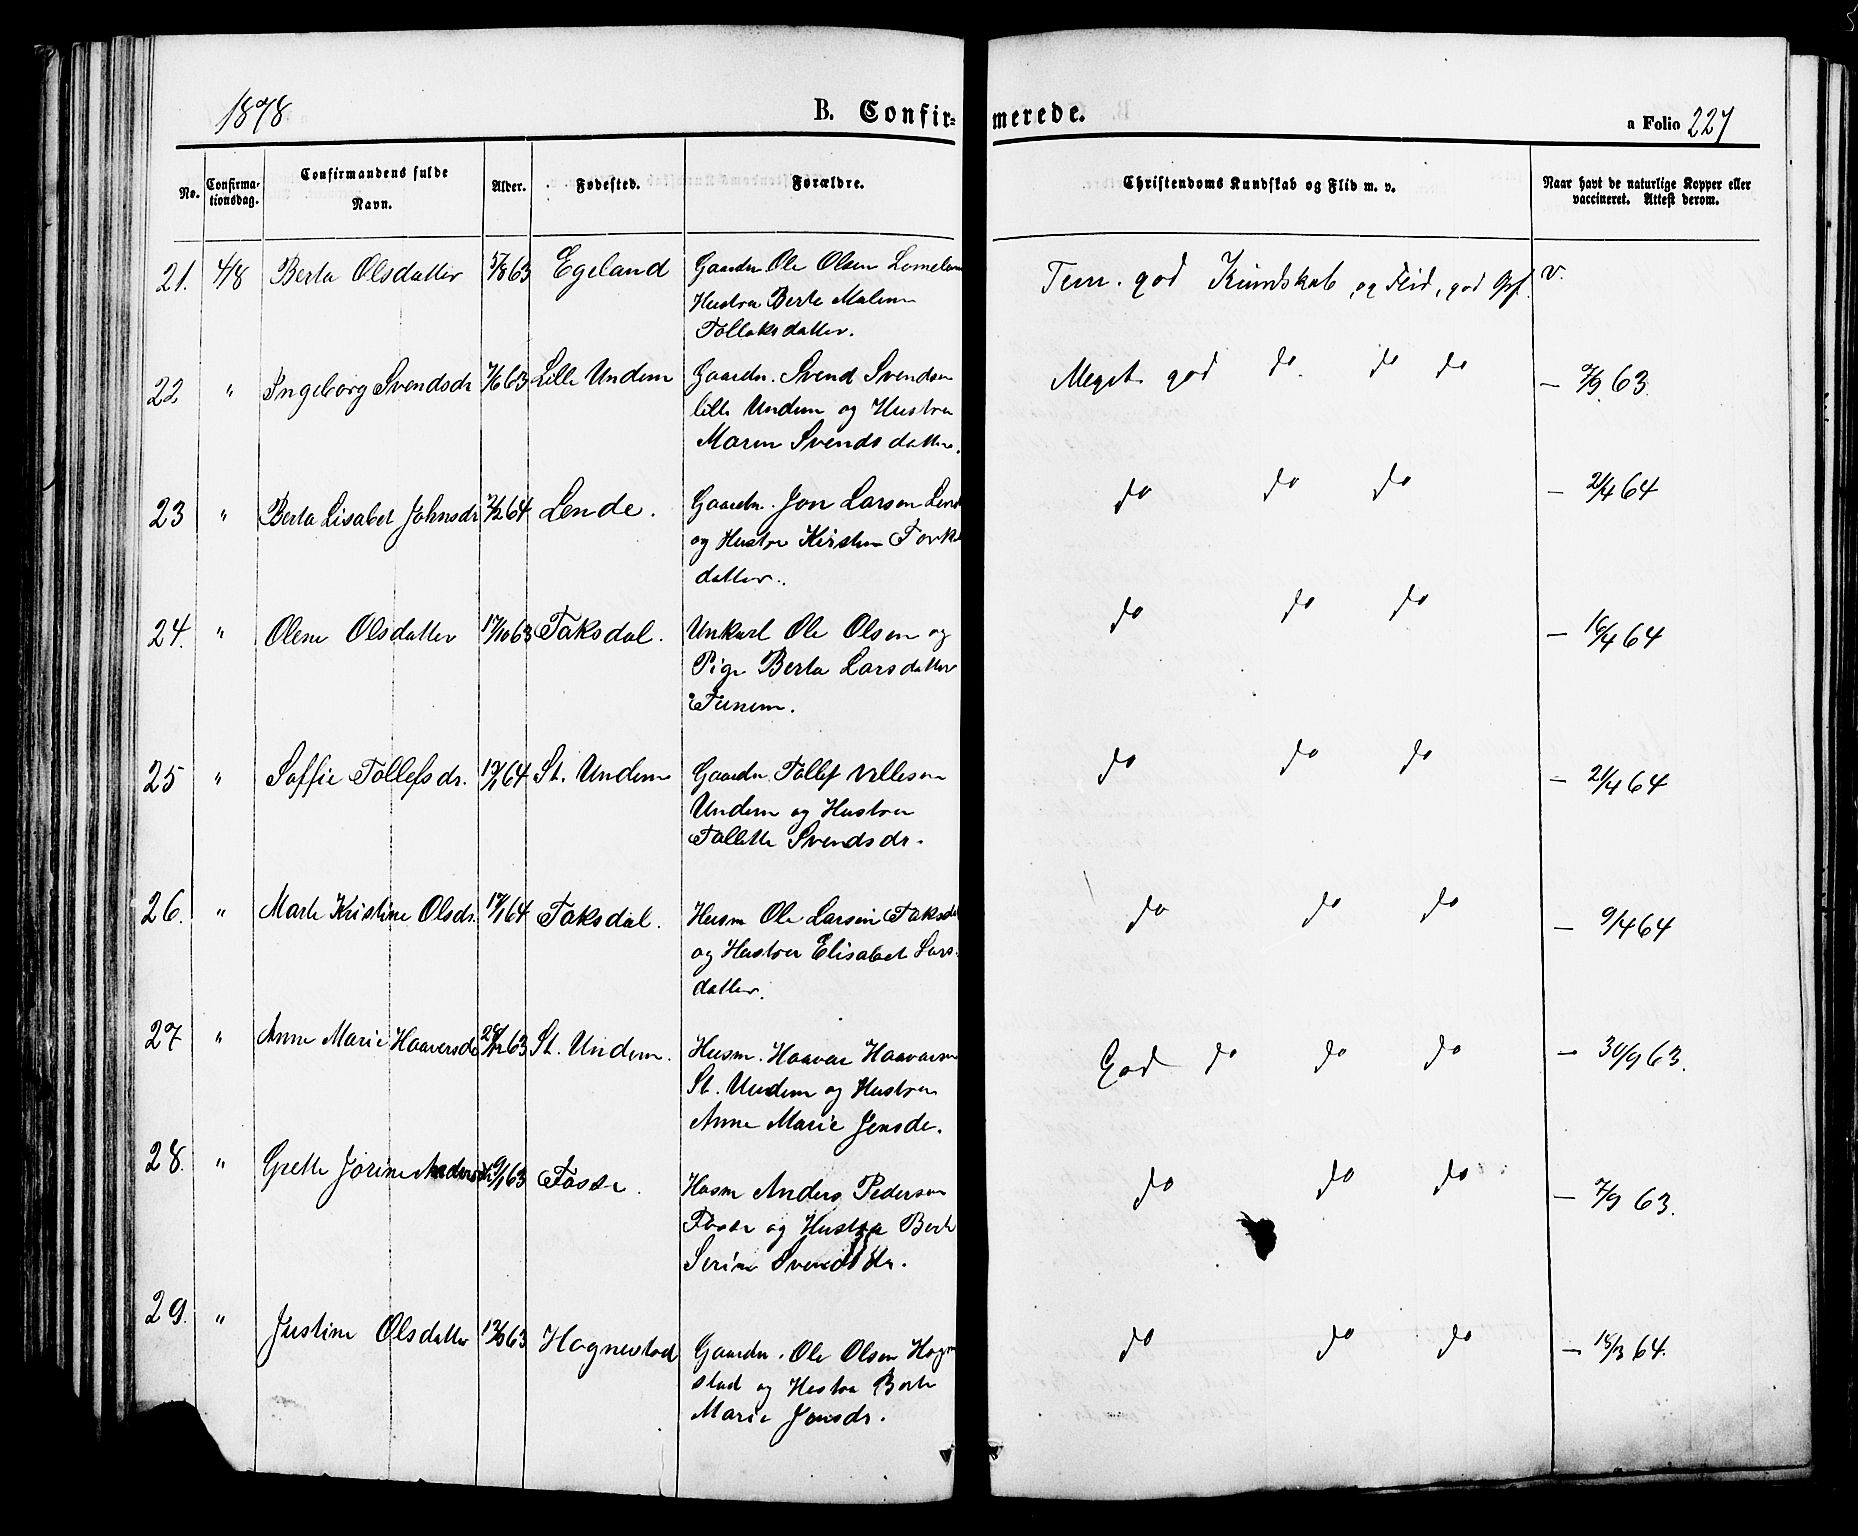 1878
B. Confirmerede.
a Folio 227
No. Confirmationsdag. Confirmandens fulde Navn. Alder. Fødested. Forældre. Christendoms Kundskab og Flid m. v. Naar havt de naturlige Kopper eller vaccineret. Attest derom.
21. 4/8 Berta Olsdatter 5/8 63 Egeland Gaardm. Ole Olsen
Hustru Berte Malene
Tollaksdatter.
Tem. god Kundskab og Flid, god Opf. v.
22 " Ingeborg Svendsdr 63 Lille Undem Gaardm. Svend Svendsen
lille Undem og Hustru
Maren Svendsdatter.
Meget god do do do — 7/9 63.
23 " Berta Lisabet Johnsdr 64 Lende. Gaardm. Jon Larsen Lende
og Hustru Kirsten
datter.
do do do — 2/4 64
24. " Olene Olsdatter 17/10 63 Taksdal. Unkarl Ole Olsen og
Pige Berta Larsdatter
Tunem.
do do do — 16/4 64
25 " Soffie Tollefsdr. 64 St. Undem Gaardm. Tollef Villesen
Undem og Hustru
Tollette Svendsdr.
do do do — 21/4 64
26. " Marte Kristine Olsdr. 17/1 64 Taksdal. Husm Ole Larsen Taksdal
og Hustru Elisabet Lars-
datter.
do do do — 9/4 64
27 " Anne Marie Haaversdr 63 St. Undem. Husm. Haavar Haavarsen
St. Undem og Hustru
Anne Marie Jensdr.
God do do do — 30/9 63.
28. " Grette Jorine Andersdr 63 Fosse. Husm Anders Pedersen
Fosse og Hustru Berte
Serine Svendsdr.
do do do — 7/9 63.
29. " Justine Olsdatter 63 Hognestad Gaardm. Ole Olsen Hogne
stad og Hustru Berte
Marie Jonsdr.
do do do — 18/3 64.